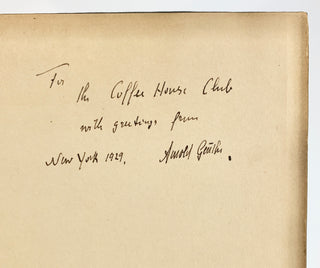 For
the Coffee House Club
with greetings from
New York 1929. Arnold Genthe.